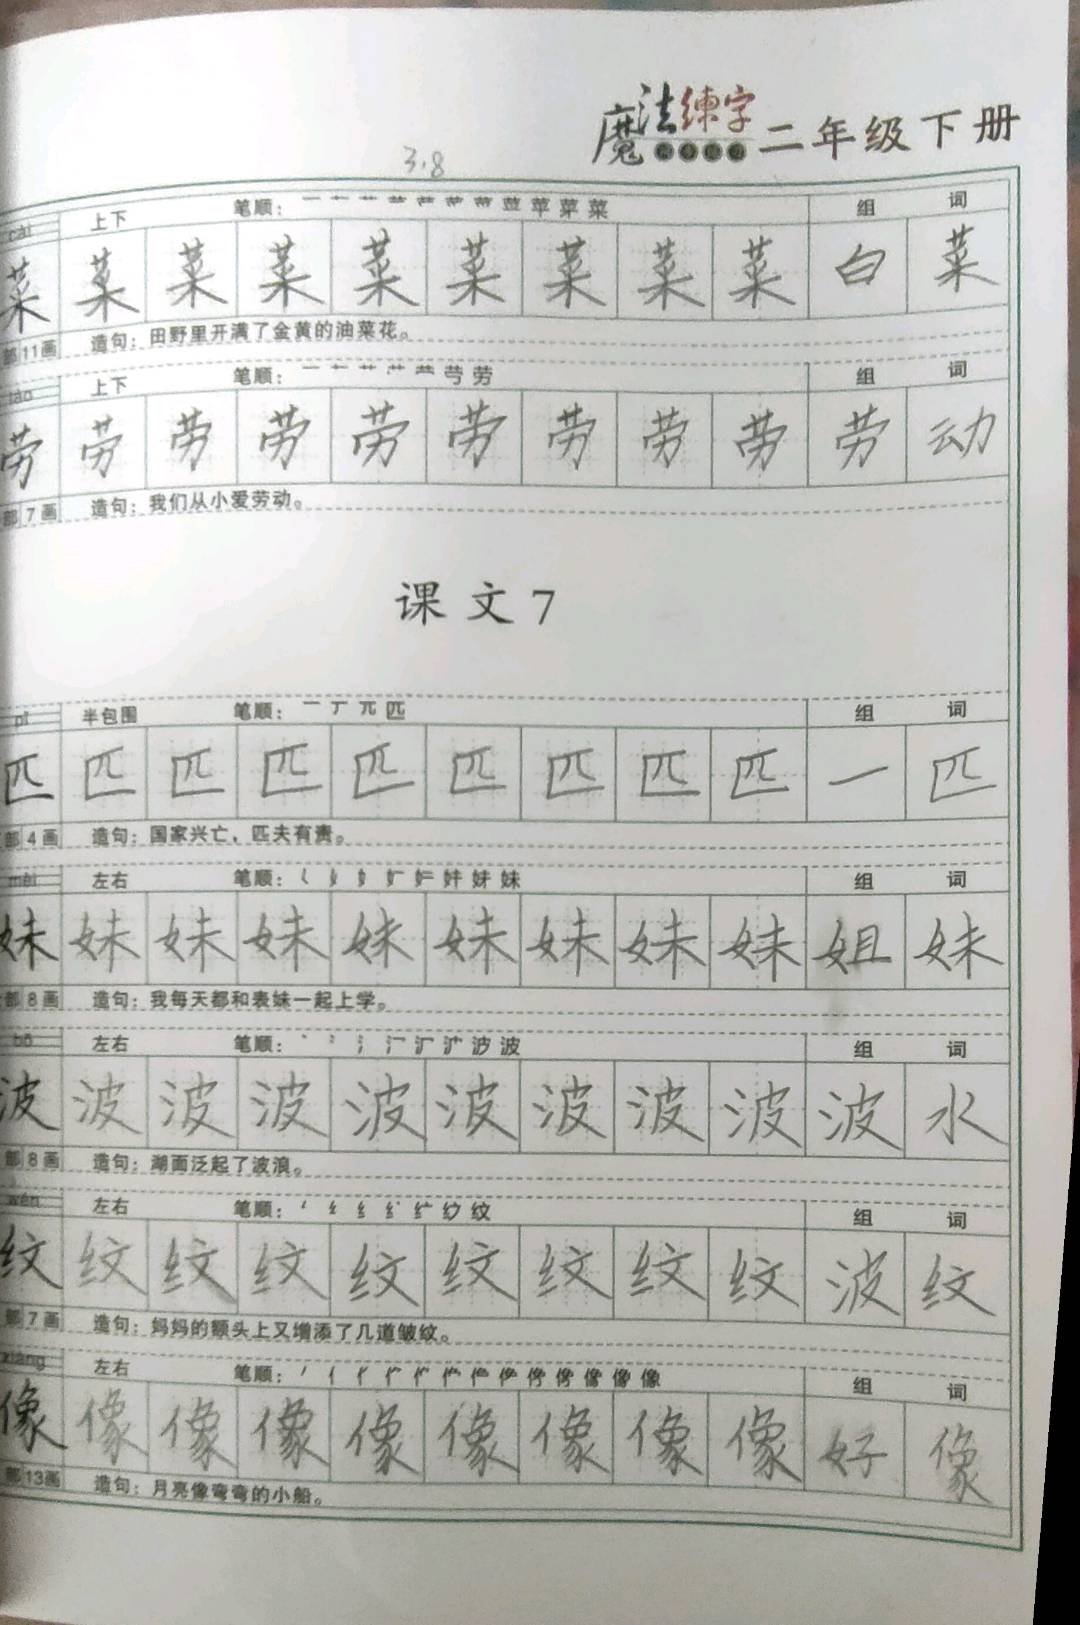 魔法练字 二年级下册
3.8
cài 上下 笔顺： 苹 菜 菜 组 词
菜 菜 菜 菜 菜 菜 菜 菜 菜 白 菜
部 11画 造句：田野里开满了金黄的油菜花。
láo 上下 笔顺： 劳 组 词
劳 劳 劳 劳 劳 劳 劳 劳 劳 劳 动
部 7画 造句：我们从小爱劳动。
课文7
pǐ 半包围 笔顺：一 丆 兀 匹 组 词
匹 匹 匹 匹 匹 匹 匹 匹 匹 一 匹
部 4画 造句：国家兴亡，匹夫有责。
mèi 左右 笔顺： 妹 组 词
妹 妹 妹 妹 妹 妹 妹 妹 妹 姐 妹
部 8画 造句：我每天都和表妹一起上学。
bō 左右 笔顺：丶 冫 氵 波 组 词
波 波 波 波 波 波 波 波 波 波 水
部 8画 造句：湖面泛起了波浪。
wén 左右 笔顺： 纟 纹 组 词
纹 纹 纹 纹 纹 纹 纹 纹 纹 波 纹
部 7画 造句：妈妈的额头上又增添了几道皱纹。
xiàng 左右 笔顺：丿 亻 像 组 词
像 像 像 像 像 像 像 像 像 好 像
部 13画 造句：月亮像弯弯的小船。